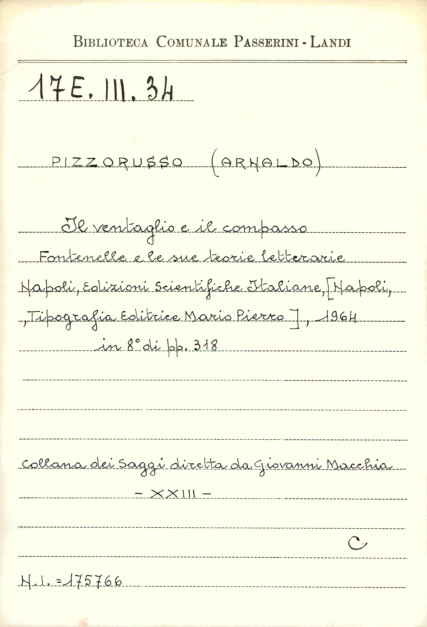 BIBLIOTECA COMUNALE PASSERINI - LANDI
17E. III. 34
PIZZORUSSO (ARNALDO)
Il ventaglio e il compasso
Fontenelle e le sue teorie letterarie
Napoli, Edizioni Scientifiche Italiane, [Napoli,
, Tipografia Editrice Mario Pierro], 1964
in 8° di pp. 318
Collana dei Saggi diretta da Giovanni Macchia
- XXIII -
C
N.I. = 175766